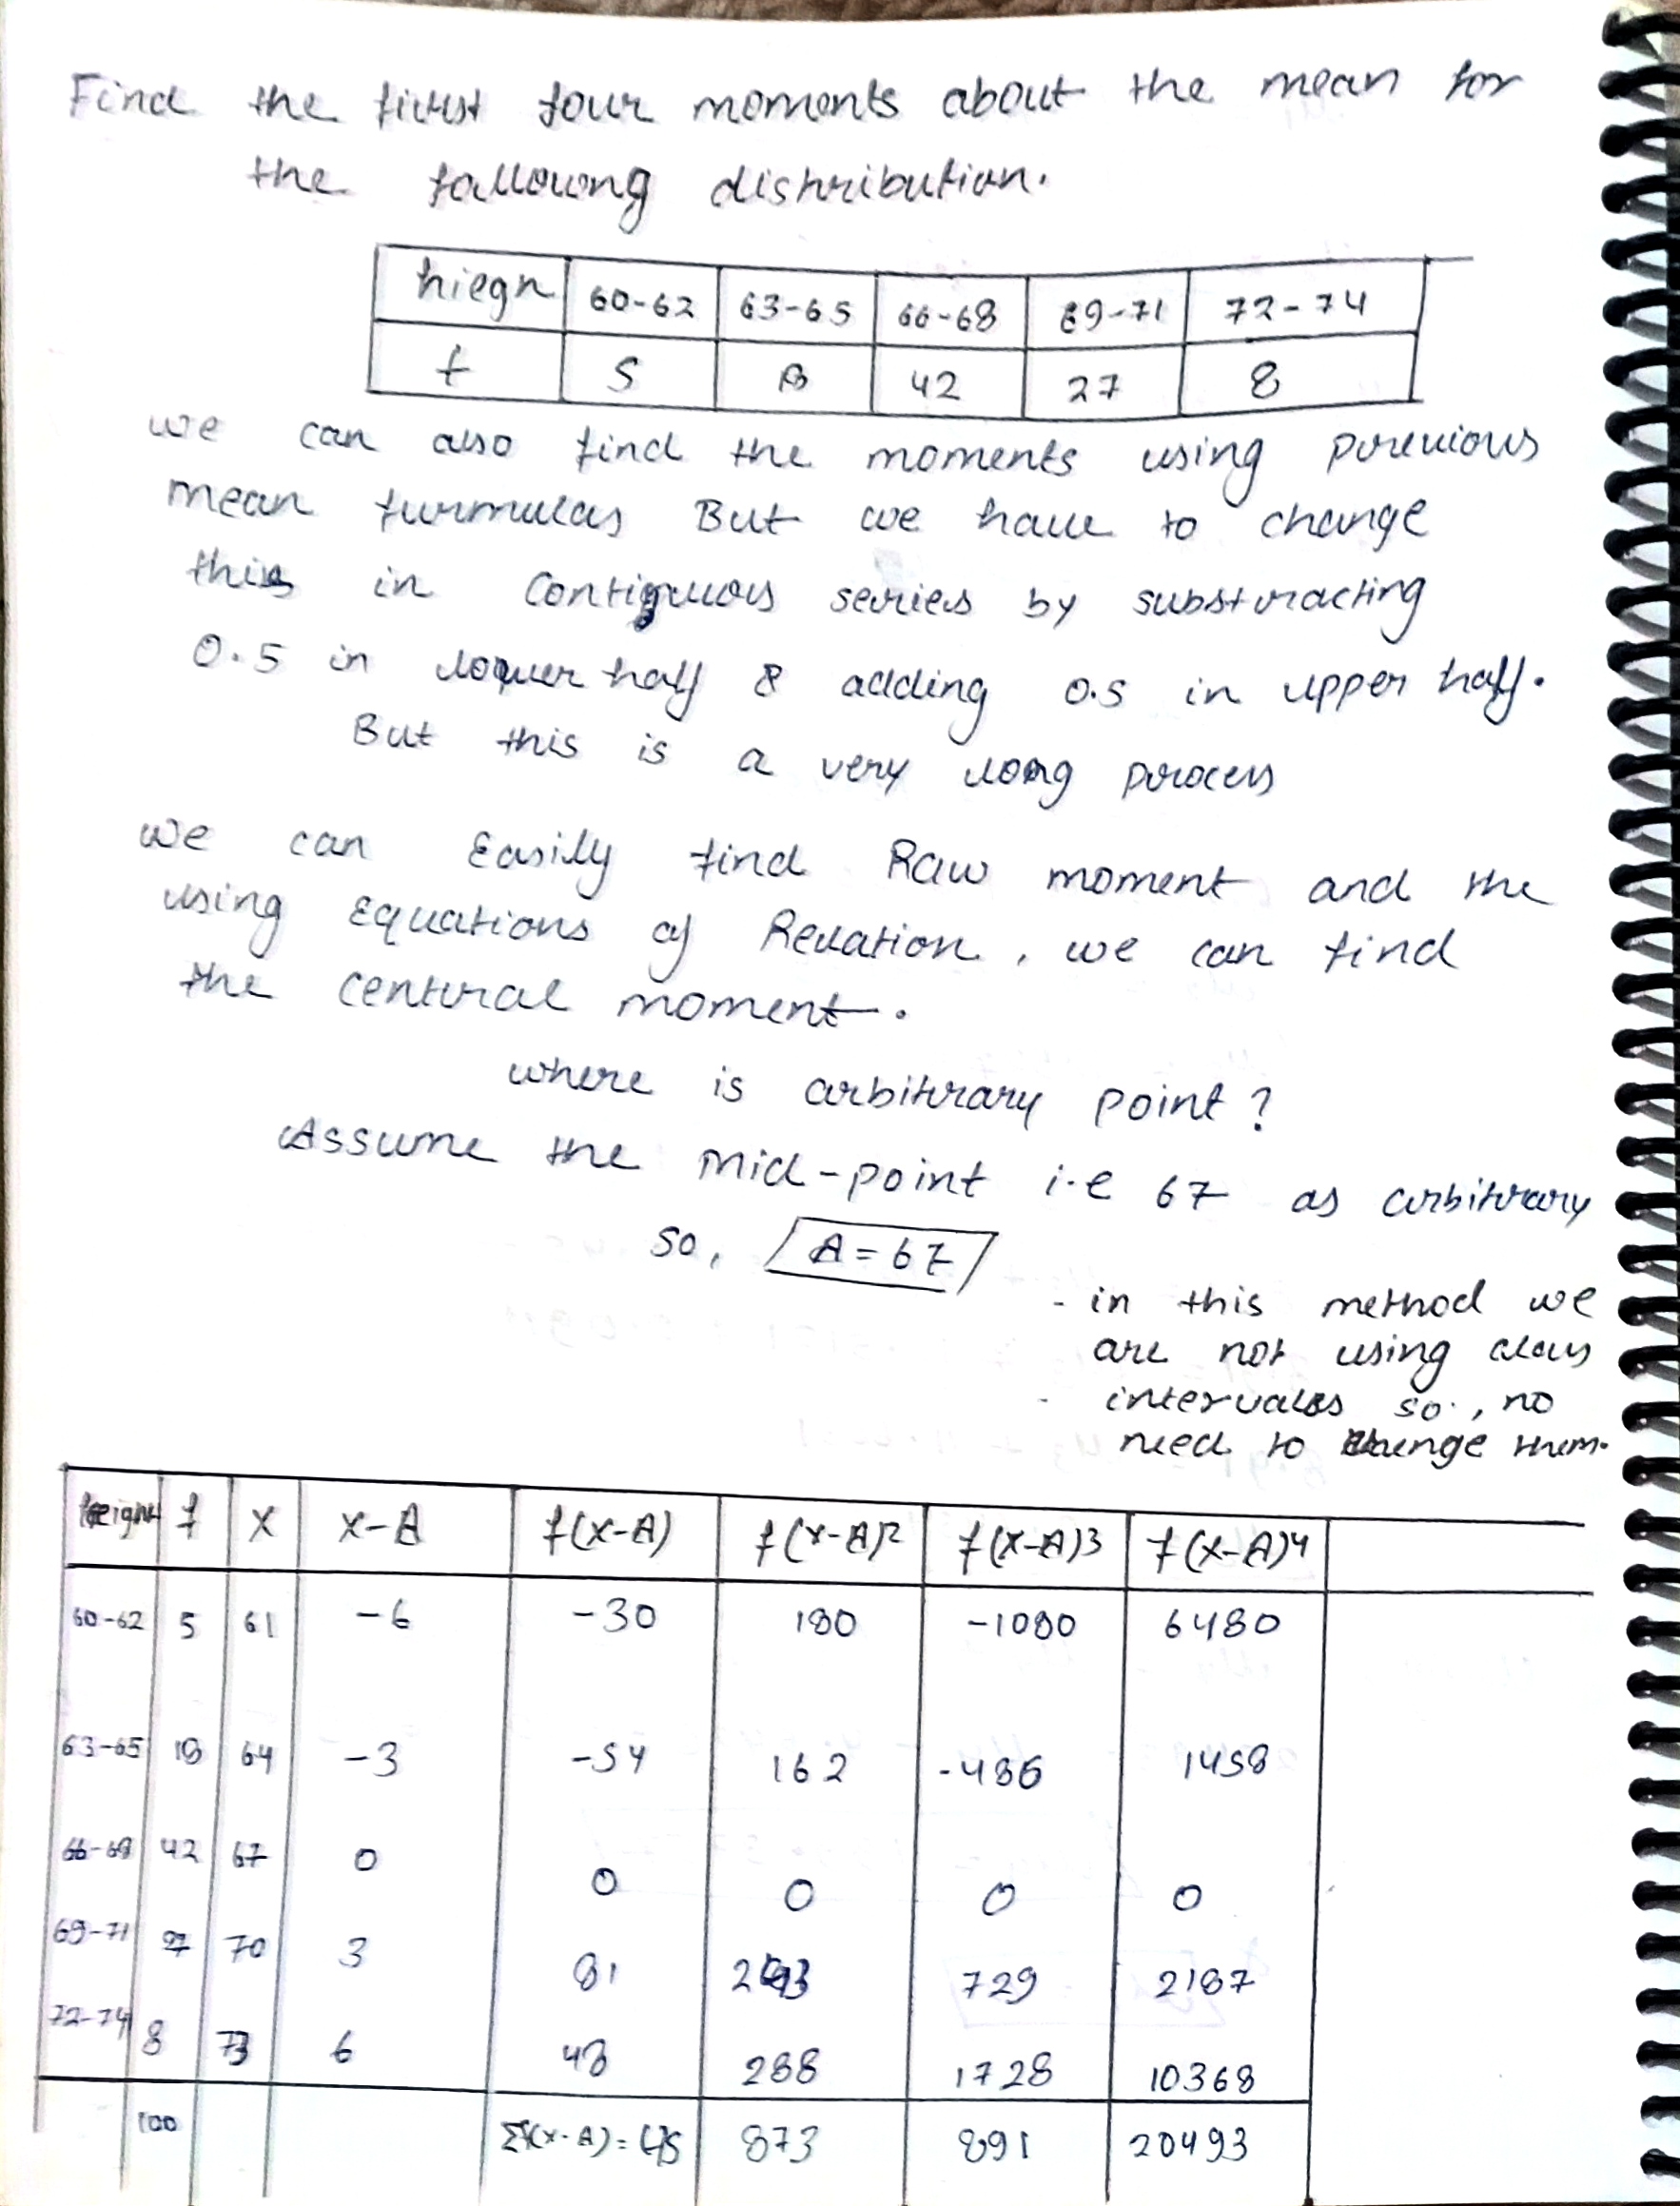 Find the first four moments about the mean for
the following distribution.
hiegn 60-62 63-65 66-68 69-71 72-74
f 5 18 42 27 8
we can also find the moments using previous
mean furmulas But we have to change
this in Contiguous series by substracting
0.5 in loquer half & adding 0.5 in upper half.
But this is a very long process
we can Easily find Raw moment and the
using Equations of Relation, we can find
the central moment.
where is arbitrary point?
Assume the mid-point i.e 67 as arbitrary
so, A = 67
- in this method we
are not using class
- intervales so, no
need to change them.
height f x x-A f(x-A) f(x-A)2 f(x-A)3 f(x-A)4
60-62 5 61 -6 -30 180 -1080 6480
63-65 18 64 -3 -54 162 -486 1458
66-68 42 67 0 0 0 0 0
69-71 27 70 3 81 243 729 2187
72-74 8 73 6 48 288 1728 10368
100 Σf(x-A) = 45 873 891 20493